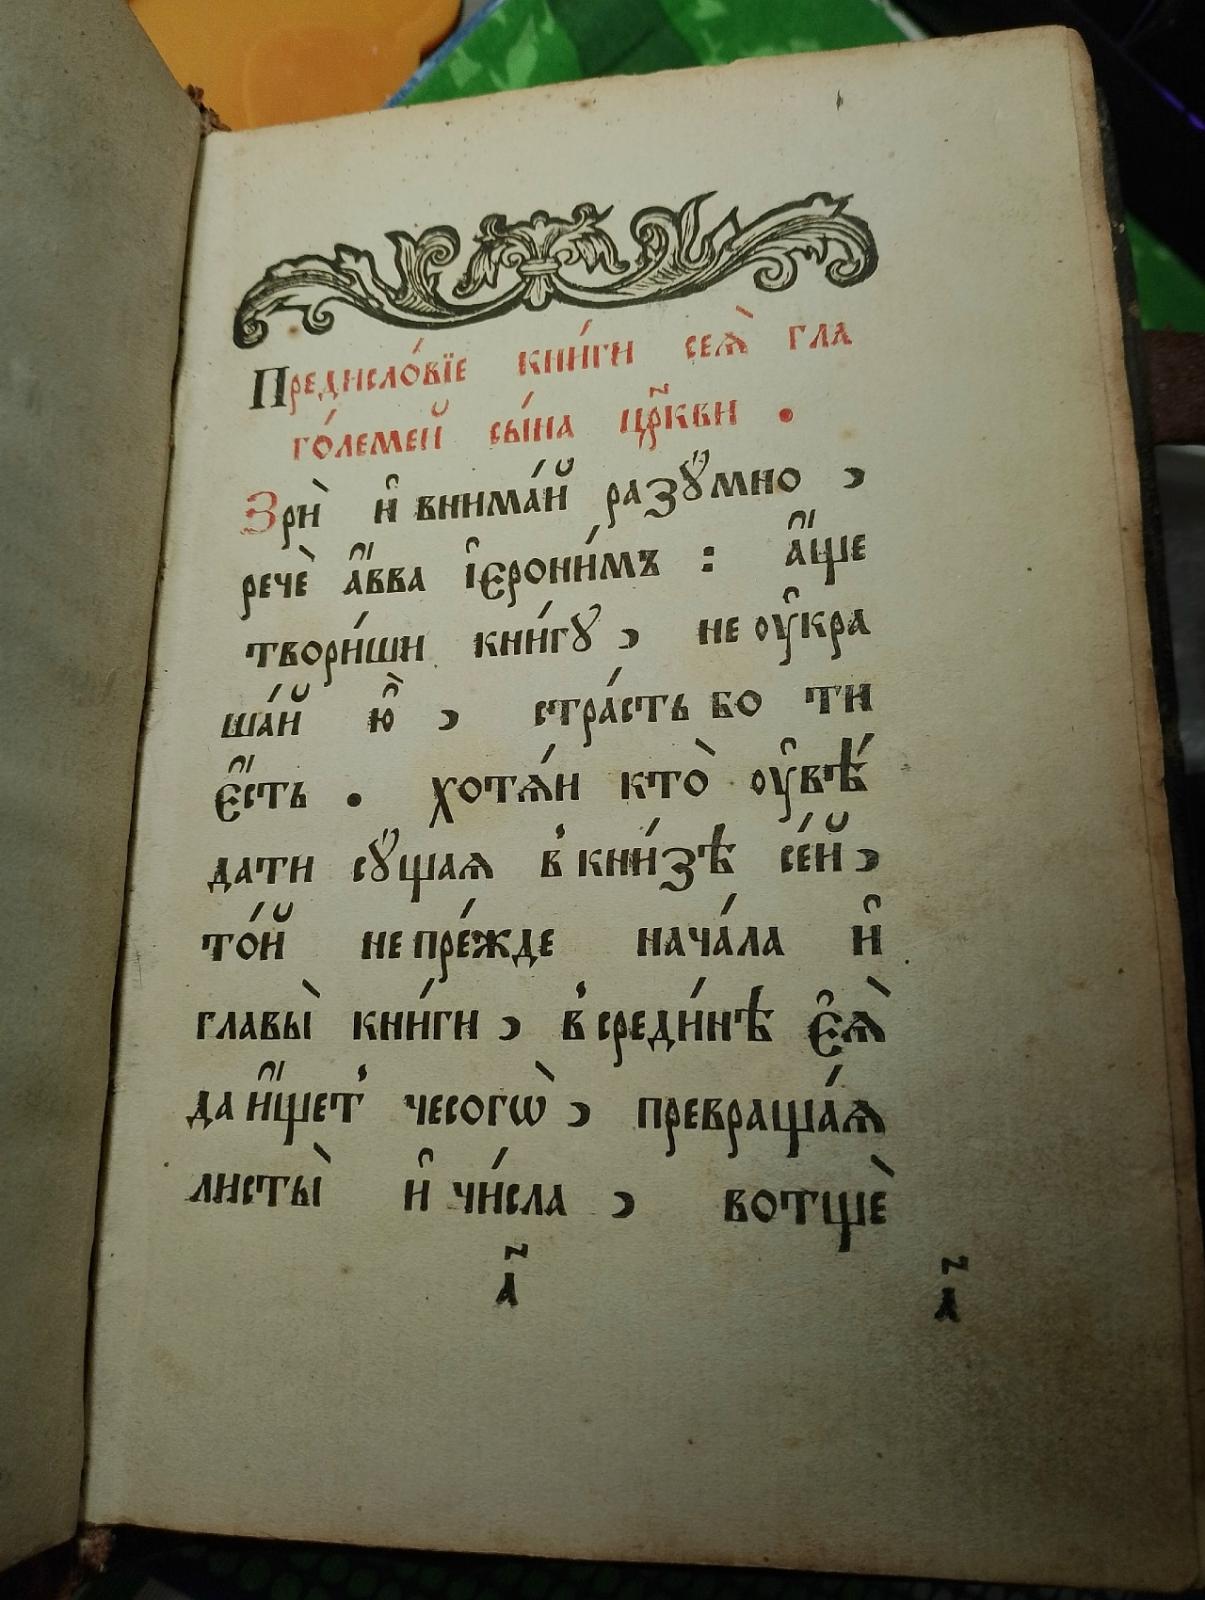 Предисло́вїе кни́ги сеѧ̀ гла
го́лемей сы́на цр҃кви .
Зрѝ и҆ внима́й разꙋ́мно ,
речѐ а҆́вва і҆єрони́мъ : а҆́ще
твори́ши кни́гꙋ , не оу҆кра
ша́й ю҆̀ , стра́сть бо ти
є҆́сть . хотѧ́и кто̀ оу҆вѣ́
дати сꙋ́щаѧ в̾ кни́зѣ се́й ,
то́й не пре́жде нача́ла и҆
главы̀ кни́ги , в̾ среди́нѣ є҆ѧ̀
да и҆́щет̾ чесогѡ̀ , превраща́ѧ
листы̀ и҆ чи́сла , вотщѐ
а҃ а҃